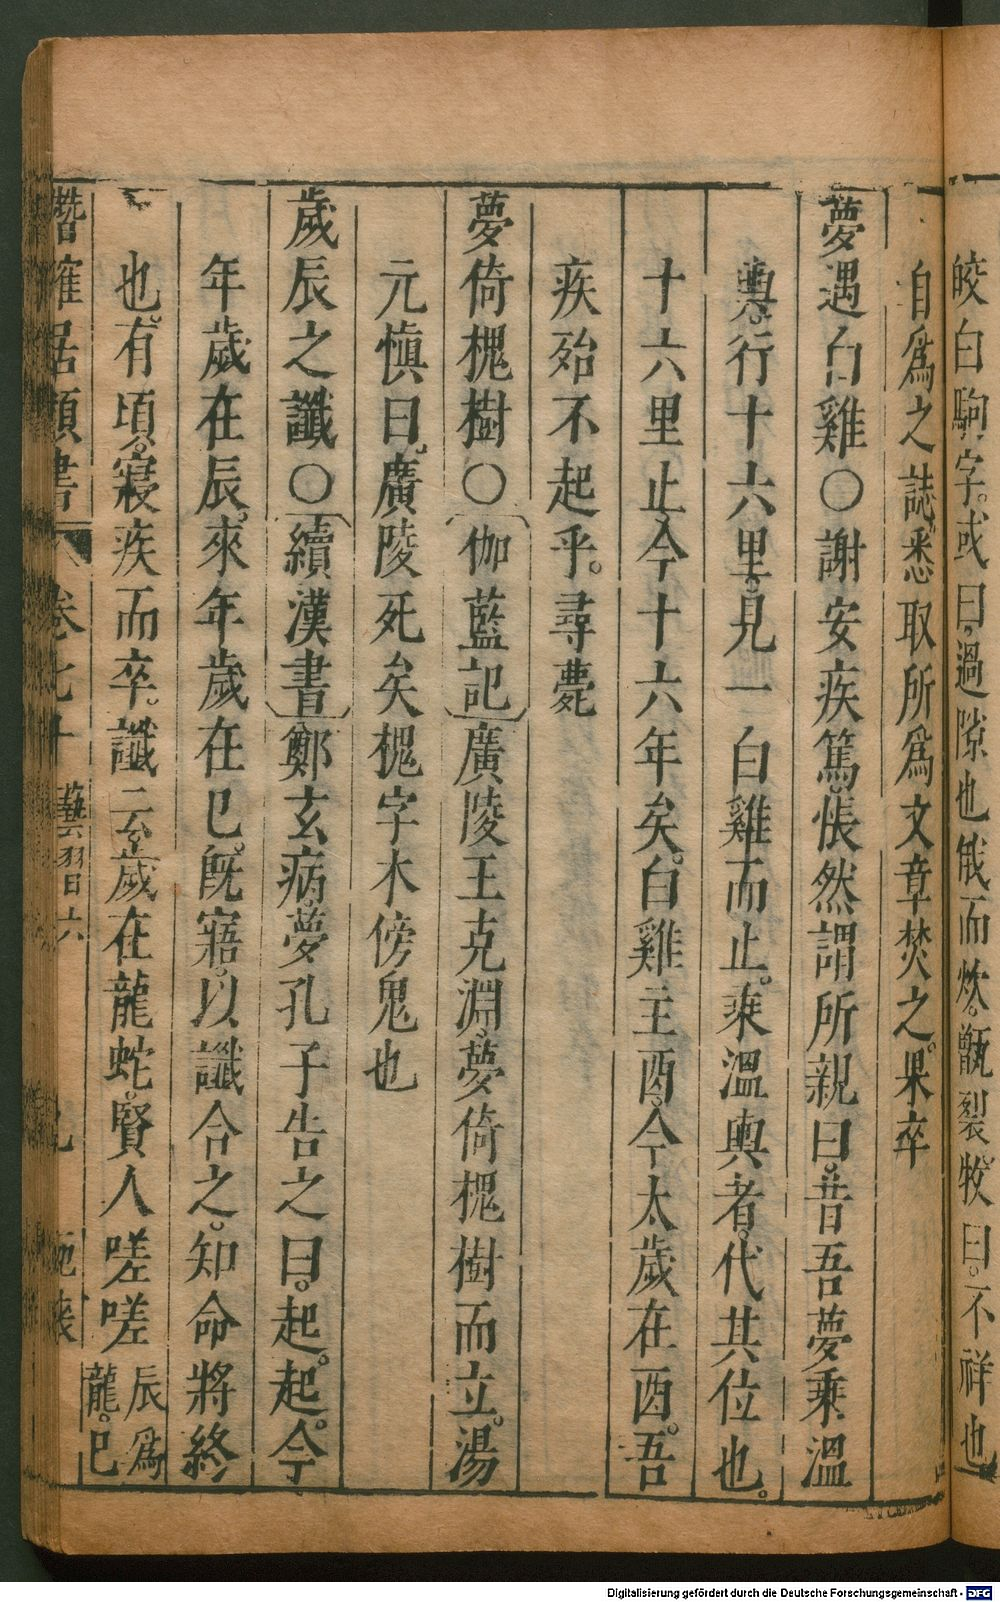 皎白駒字。或曰、過隙也俄而炊。甑裂。牧曰。不祥也
自爲之誌、悉取所爲文章焚之。果卒
夢遇白雞〇謝安疾篤、悵然謂所親曰。昔吾夢乘溫
輿。行十六里。見一白雞而止。乘溫輿者。代其位也。
十六里止今十六年矣。白雞主酉。今太歲在酉。吾
疾殆不起乎。尋薨
夢倚槐樹〇伽藍記廣陵王克淵、夢倚槐樹而立。湯
元慎曰。廣陵死矣槐字木傍鬼也
歲辰之讖〇續漢書鄭玄病。夢孔子告之曰。起。起。今
年歲在辰。來年歲在巳。旣寤。以讖合之。知命將終
也。有頃。寢疾而卒。讖云歲在龍蛇。賢人嗟嗟辰爲龍。巳
居類書 卷七十 藝習六
Digitalisierung gefördert durch die Deutsche Forschungsgemeinschaft - DFG